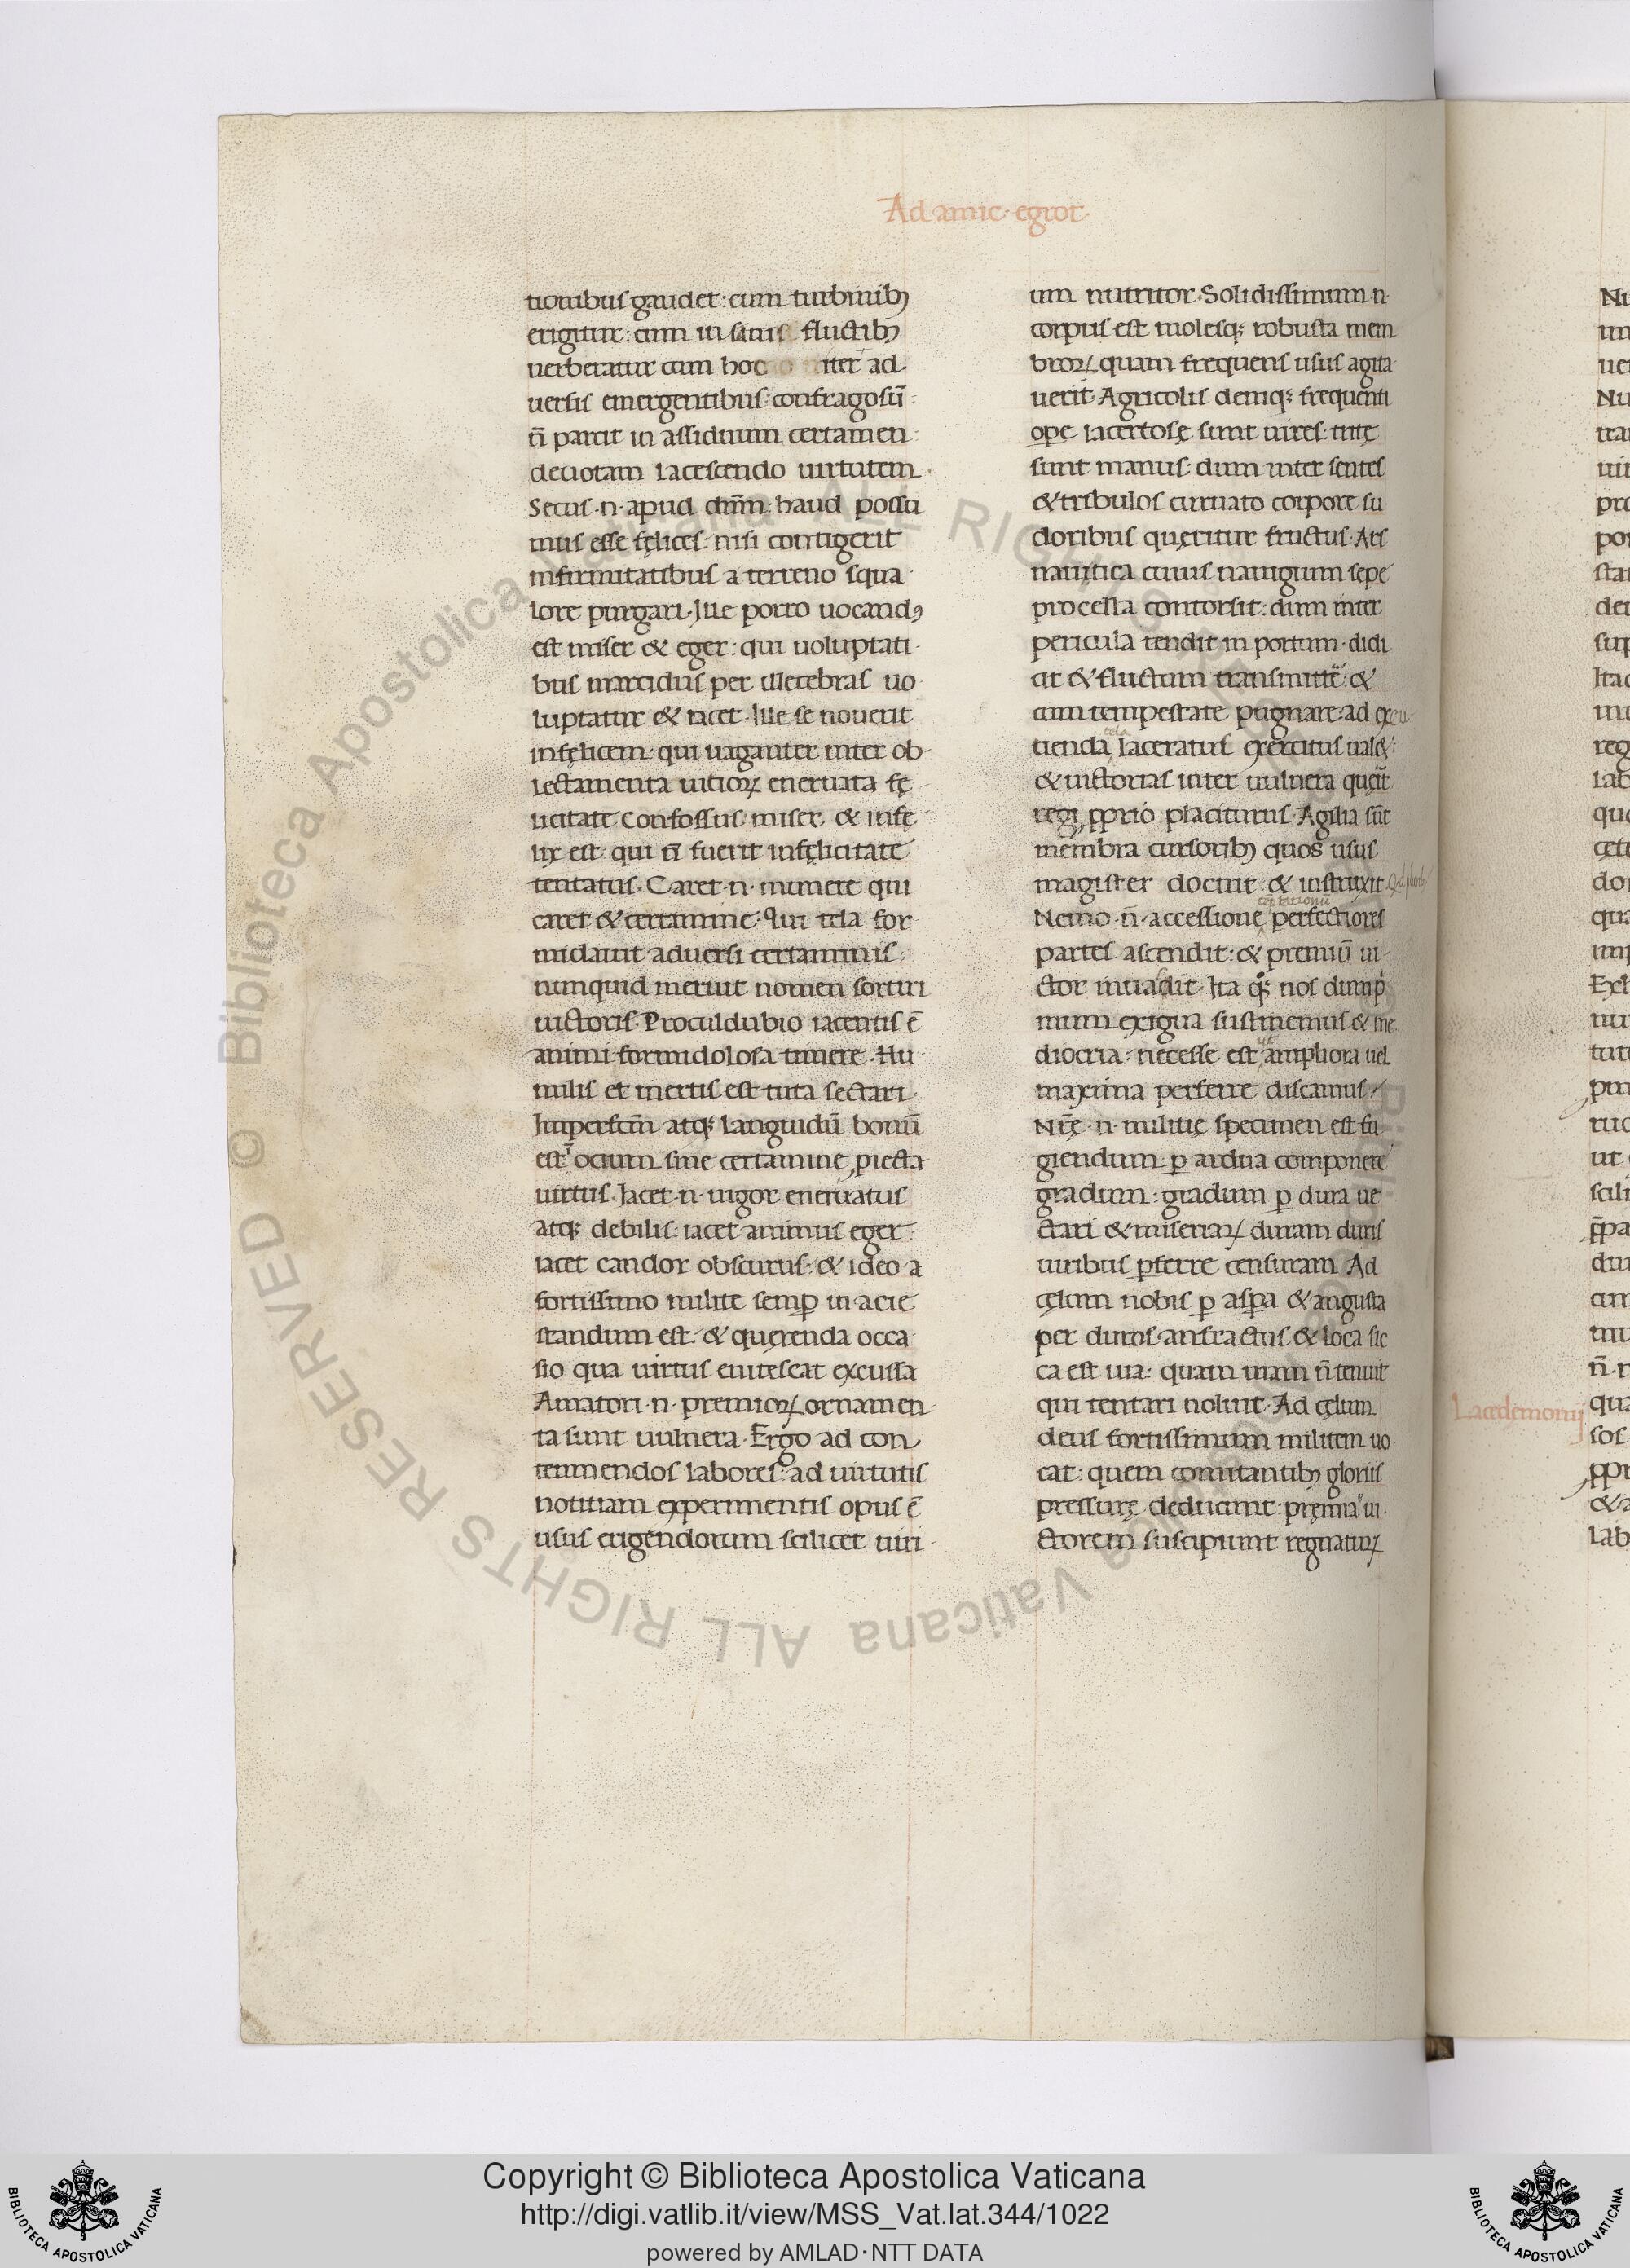 Ad amic· egrot·
tionibus gaudet: cum turbinibꝰ
erigitur: cum in fluctibꝰ
uerberatur cum ad
uersis emergentibus: confragosū
n̄ parcit in assiduum certamen
deuotam lacescendo uirtutem·
Secus·n· apud dn̄m: haud possu
mus esse fęlices: nisi contigerit
infirmitatibus a terreno squa
lore purgari· Ille porro uocandꝰ
est miser & eger: qui uoluptati
bus marcidus per illecebras uo
luptatur & iacet· Ille se nouerit
infęlicem· qui uaganter inter ob
lectamenta uitioꝝ eneruata fę
licitate confossus· miser & infę
lix est· qui n̄ fuerit infęlicitate
tentatus· Caret·n· munere qui
caret & certamine· Qui tela for
midauit aduersi certaminis·
nunquid meruit nomen sortiri
uictoris· Proculdubio iacentis ē
animi formidolosa timere· Hu
milis et inertis est tuta sectari·
Imperfectm̄ atqꝫ languidū bonū
est ocium sine certamine ꝓiecta
uirtus· Iacet·n· uigor eneruatus
atqꝫ debilis· iacet animus eger·
iacet candor obscurus· & ideo a
fortissimo milite semꝑ in acie
standum est· & querenda occa
sio qua uirtus enitescat excussa
Amatori·n· premioꝝ ornamen
ta sunt uulnera· Ergo ad con
temnendos labores: ad uirtutis
notitiam experimentis opus ē
usus erigendorum scilicet uiri
um nutritor· Solidissimum·n·
corpus est molesqꝫ robusta mem
broꝝ quam frequens usus agita
uerit· Agricolis deniqꝫ frequenti
ope lacertosę sunt uires: tritę
sunt manus: dum inter sentes
& tribulos curuato corpore su
doribus quęritur fructus· Ars
nautica cuius nauigium sepe
procella contorsit: dum inter
pericula tendit in portum· didi
cit & fluctum transmitte͞: &
cum tempestate pugnare: ad excu
tienda tela laceratus exercitus ual&:
& uictorias inter uulnera quęrit
regi ꝓprio placiturus· Agilia sūt
membra cursoribꝰ quos usus
magister docuit & instruxit·
Nemo·n̄· accessione perfectiores
partes ascendit: & premiū ui
ctor inuadit· Ita qꝫ nos dum pͥ
mum exigua sustinemus & me
diocria: necesse est ut ampliora uel
maxima perferre discamus·
Nr̄ę·n· militię specimen est fu
giendum· ꝑ ardua componere
gradum: gradum ꝑ dura ue
ctari & miseriaꝝ diram duris
uiribus ꝑferre censuram Ad
cęlum nobis ꝑ asꝑa & angusta
per duros anfractus & loca sic
ca est uia: quam uiam n̄ tenuit
qui tentari noluit· Ad cęlum
deus fortissimum militem uo
cat: quem comitantibꝰ gloriis
pressurę deducunt· pręmia ui
ctorem suscipiunt regnaturꝝ
Lacedemonij
Copyright © Biblioteca Apostolica Vaticana
http://digi.vatlib.it/view/MSS_Vat.lat.344/1022
powered by AMLAD·NTT DATA
BIBLIOTECA APOSTOLICA VATICANA
BIBLIOTECA APOSTOLICA VATICANA
© Biblioteca Apostolica Vaticana ALL RIGHTS RESERVED